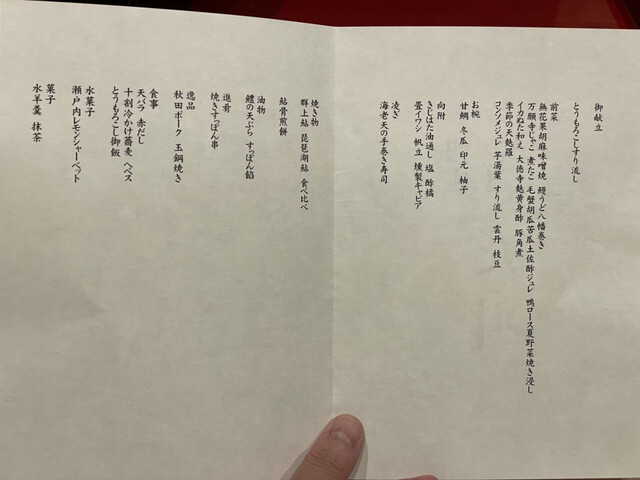 御献立
とうもろこしすり流し
前菜
無花果胡麻味噌焼 鰻うど八幡巻き
万願寺じゃこ 煮たこ 毛蟹胡瓜苦瓜土佐酢ジュレ 鴨ロース夏野菜焼き浸し
イカぬた和え 大徳寺麩黄身酢 豚角煮
季節の天麩羅
コンソメジュレ 芋湯葉 すり流し 雲丹 枝豆
お椀
甘鯛 冬瓜 印元 柚子
向附
きじはた油通し 塩 酢橘
畳イワシ 帆立 燻製キャビア
凌ぎ
海老天の手巻き寿司
焼き物
群上鮎 琵琶湖鮎 食べ比べ
鮎骨煎餅
油物
鱧の天ぷら すっぽん餡
進肴
焼きすっぽん串
逸品
秋田ポーク 玉鋼焼き
食事
天バラ 赤だし
十割冷かけ蕎麦 ヘベス
とうもろこし御飯
水菓子
瀬戸内レモンシャーベット
菓子
水羊羹 抹茶